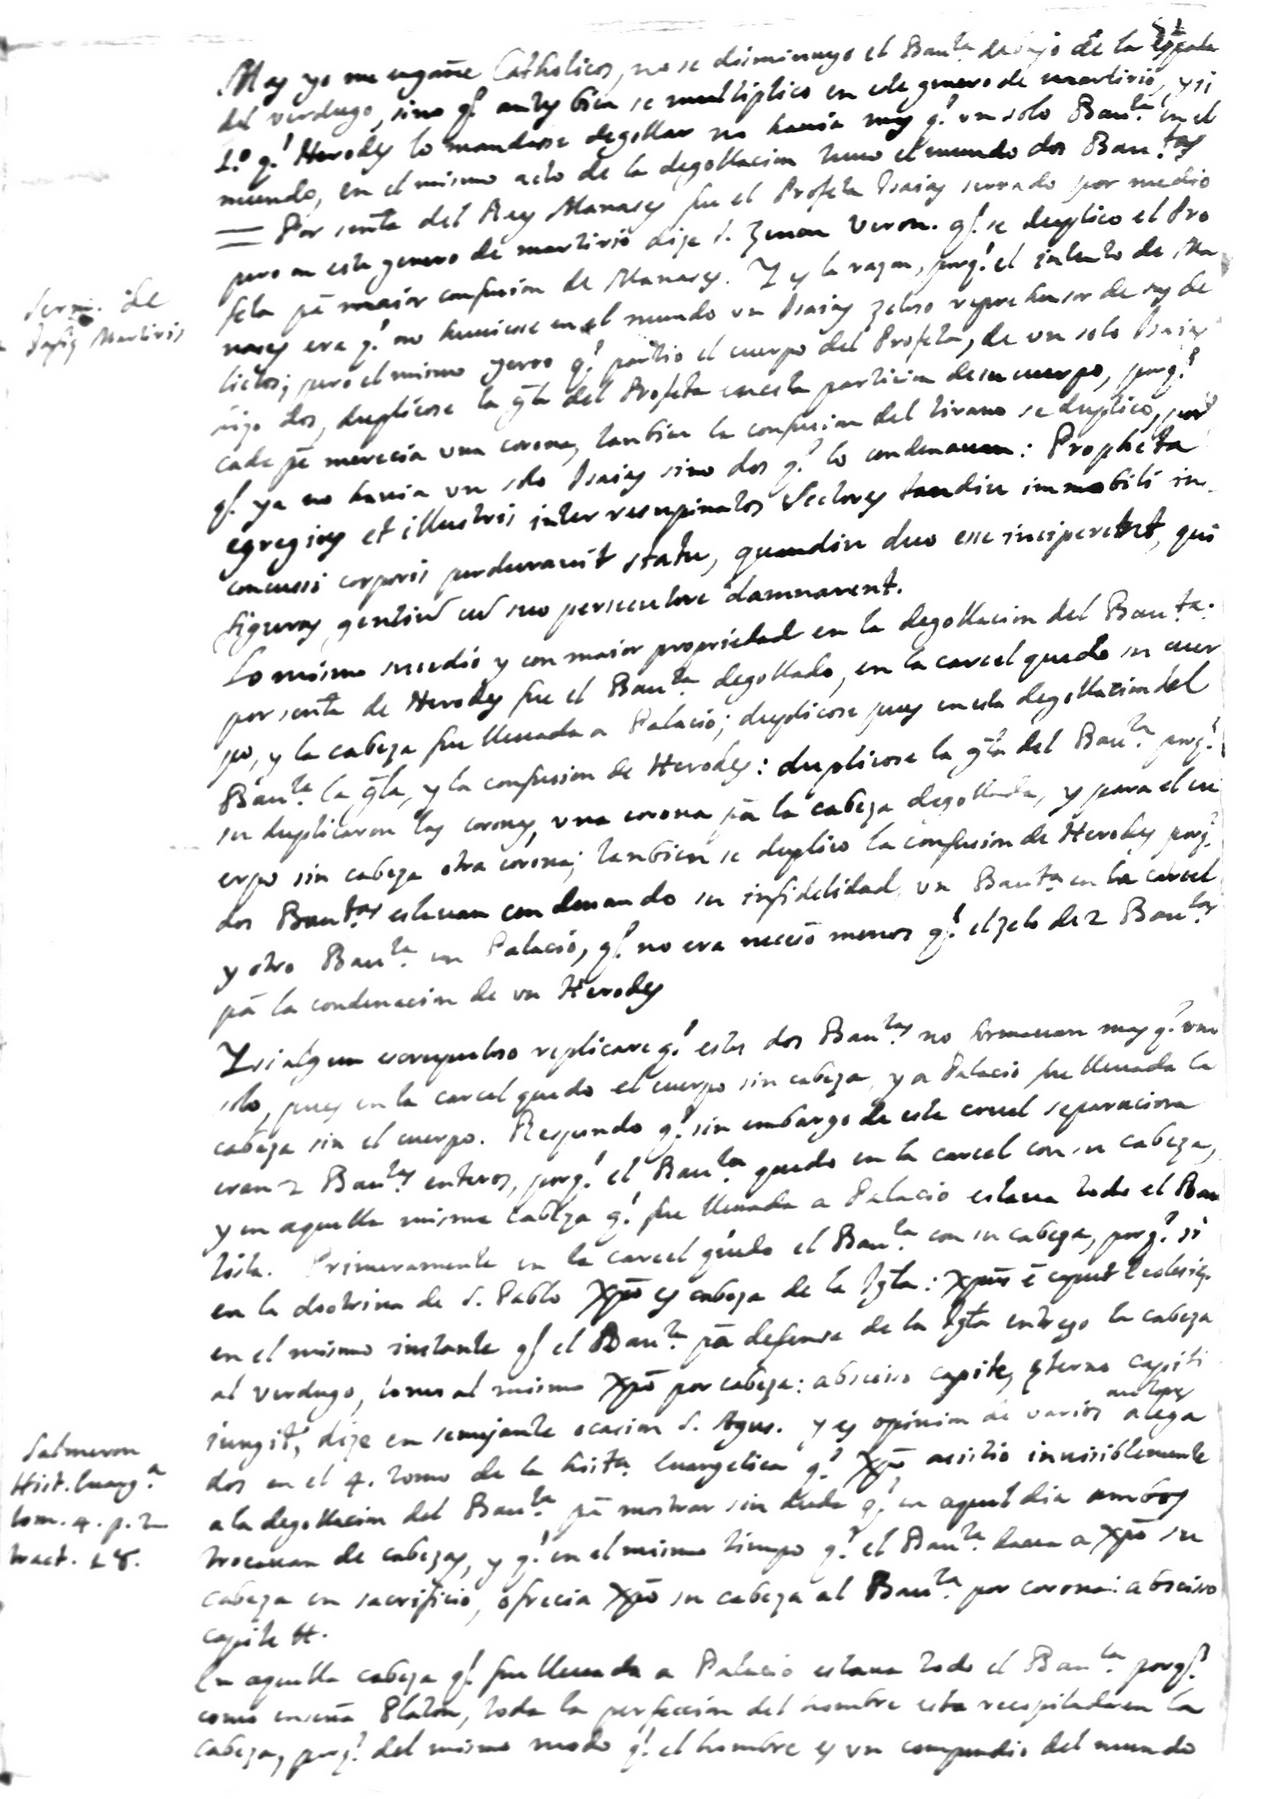 51
Mas yo me engañe Catholicos, no se disminuyo el Bau.ta debajo de la espada
del verdugo, sino q.e antes bien se multiplico en este genero de martirio, y si
1.o q.e Herodes lo mandasse degollar no hauia mas q.e un solo Bau.ta en el
mundo, en el mismo acto de la degollacion tuuo el mundo dos Bau.tas
= Por sent.a del Rey Manases fue el Profeta Isaias serrado por medio
pero en este genero de martirio dize S. Zenon Veron. q.e se duplico el Pro
feta pa maior confusion de Manases. Y es la razon, porq.e el intento de Ma
nases era q.e no huuiesse en el mundo un Isaias zeloso reprehensor de sus de
lictos; pero el mismo yerro q.e partio el cuerpo del Profeta, de un solo Isaias
hizo dos, duplicose la gla del Profeta en esta particion de su cuerpo, porq.e
cada pe merecia una corona, tanbien la confusion del tirano se duplico, por
q.e ya no hauia un solo Isaias sino dos q.e lo condenauan: Propheta
egregius et illustris inter resupinatos Sectores tandiu immobili in-
concussi corporis perdurauit statu, quandiu duo esse inciperent, qui
figuras gentiũ cũ suo persecutore damnarent.
Serm. de
Isaiæ Martiris
Lo mismo sucedió y con maior propriedad en la degollacion del Bau.ta.
por sent.a de Herodes fue el Bau.ta degollado, en la carcel quedo su cuer
po, y la cabeza fue lleuada a Palacio; duplicose pues en esta degollacion del
Bau.ta la gla, y la confusion de Herodes: duplicose la gla del Bau.ta porq.e
se duplicaron las coronas, una corona pa la cabeza degollada, y para el cu
erpo sin cabeza otra corona; tanbien se duplico la confusion de Herodes porq.e
dos Bau.tas estauan condenando su infidelidad, un Bau.ta en la carcel
y otro Bau.ta en Palacio, q.e no era neccō menos q.e el zelo de 2 Bau.tas
pa la condenacion de un Herodes
Y si algun escrupuloso replicare q.e estos dos Bau.tas no formauan mas q.e uno
solo, pues en la carcel quedo el cuerpo sin cabeza, y a Palacio fue lleuada la
cabeza sin el cuerpo. Respondo q.e sin embargo de esta cruel separacion
eran 2 Bau.tas enteros, porq.e el Bau.ta quedo en la carcel con su cabeza,
y en aquella misma cabeza q.e fue lleuada a Palacio estaua todo el Bau
tista. Primeramente en la carcel quedo el Bau.ta con su cabeza, porq.e si
en la doctrina de S. Pablo Xpō es cabeza de la Igla: Xpūs ē caput Ecclesiæ.
en el mismo instante q.e el Bau.ta pa defensa de la Igla entrego la cabeza
al verdugo, tomo al mismo Xpō por cabeza: absciso capite, æterno capiti
iungit, dize en semejante ocasion S. Agus. y es opinion de varios autores alega
dos en el 4. tomo de la hist.a Euangelica q.e Xpō asistio inuisiblemente
a la degollacion del Bau.ta pa mostrar sin duda q.e en aquel dia ambos
trocauan de cabezas, y q.e en el mismo tiempo q.e el Bau.ta daua a Xpō su
cabeza en sacrificio, ofrecia Xpō su cabeza al Bau.ta por corona: absciso
capite &.
Salmeron
Hist. Euang.a
tom. 4. p. 2
tract. 28.
En aquella cabeza q.e fue lleuada a Palacio estaua todo el Bau.ta porq.e
como enseña Platon, toda la perfeccion del hombre esta recopilada en la
cabeza, porq.e del mismo modo q.e el hombre es un compendio del mundo